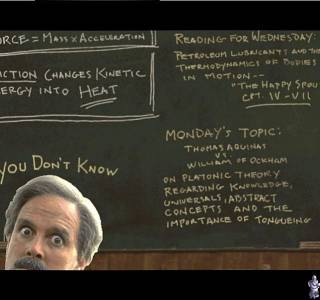 ORCE = MASS X ACCELERATION
ICTION CHANGES KINETIC
ERGY INTO HEAT
YOU DON'T KNOW
READING FOR WEDNESDAY:
PETROLEUM LUBRICANTS AND THE
THERMODYNAMICS OF BODIES
IN MOTION--
"THE HAPPY SPOU
CPT. IV - VII
MONDAY'S TOPIC:
THOMAS AQUINAS
VS.
WILLIAM OF OCKHAM
ON PLATONIC THEORY
REGARDING KNOWLEDGE,
UNIVERSALS, ABSTRACT
CONCEPTS AND THE
IMPORTANCE OF TONGUEING